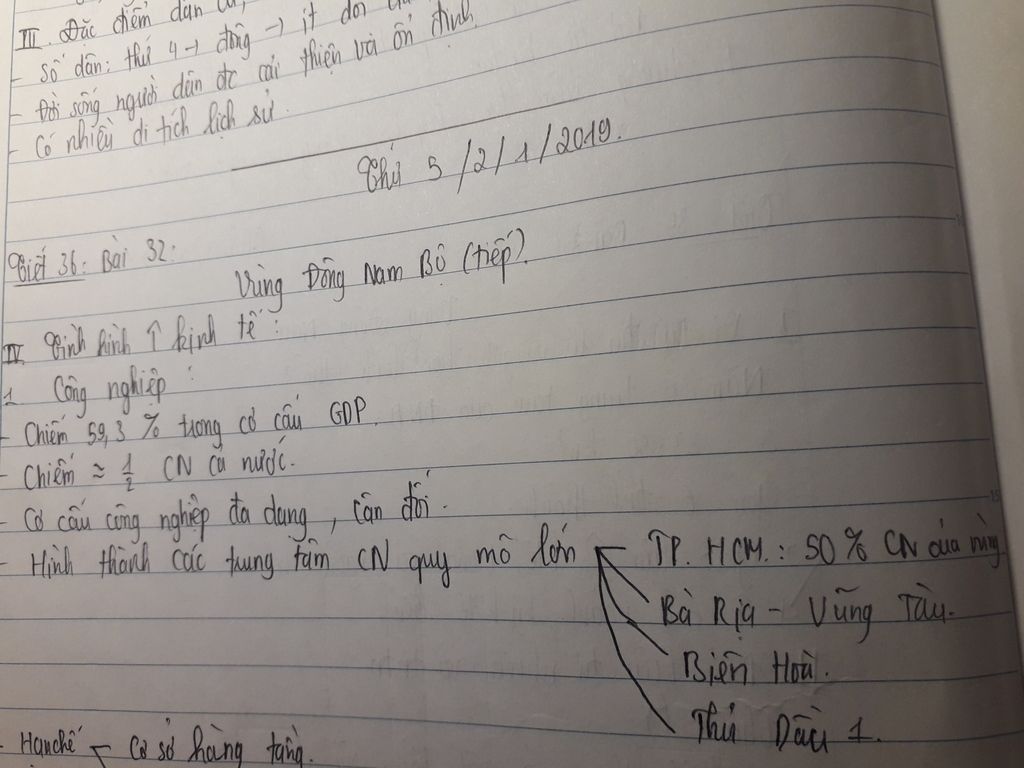 III. Đặc điểm dân cư,
- Số dân: thứ 4 → đông → ít đôi
- Đời sống người dân đc cải thiện và ổn định
- Có nhiều di tích lịch sử.
Thứ 5/2/1/2019.
Tiết 36: Bài 32:
Vùng Đông Nam Bộ (tiếp).
IV Tình hình ↑ kinh tế:
1 Công nghiệp:
- Chiếm 59,3 % trong cơ cấu GDP.
- Chiếm ≈ 1/2 CN cả nước.
- Cơ cấu công nghiệp đa dạng, cân đối.
- Hình thành các trung tâm CN quy mô lớn TP. HCM.: 50 % CN của vùng
Bà Rịa - Vũng Tàu.
Biên Hoà.
Thủ Dầu 1.
- Hạn chế Cơ sở hàng tầng.